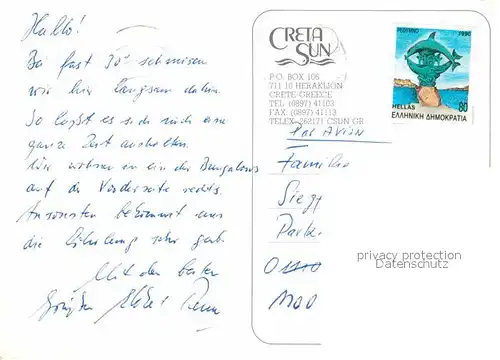 Hallo!
Bei fast 30° schmisen
wir hier langsam dahin.
So läßt es sich noch eine
ganze Zeit aushalten.
Wir wohnen in ein der Bungalows
auf der Vorderseite rechts.
Ansonsten bekommt uns
die Erholung sehr gut.
Mit den besten
CRETA
SUN
P.O. BOX 106
711 10 HERAKLION
CRETE-GREECE
TEL (0897) 41103
FAX: (0897) 41113
TELEX 262171 CSUN GR
ΡΕΘΥΜΝΟ 1990
HELLAS 80
ΕΛΛΗΝΙΚΗ ΔΗΜΟΚΡΑΤΙΑ
PAR AVION
Familie
privacy protection
Datenschutz